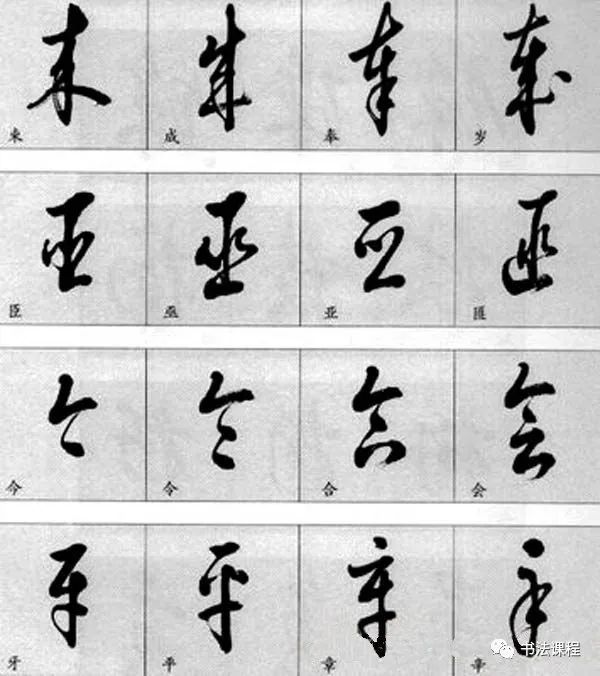 来 成 奉 岁
臣 亚 匪
今 令 合 会
牙 平 章 辛
书法课程